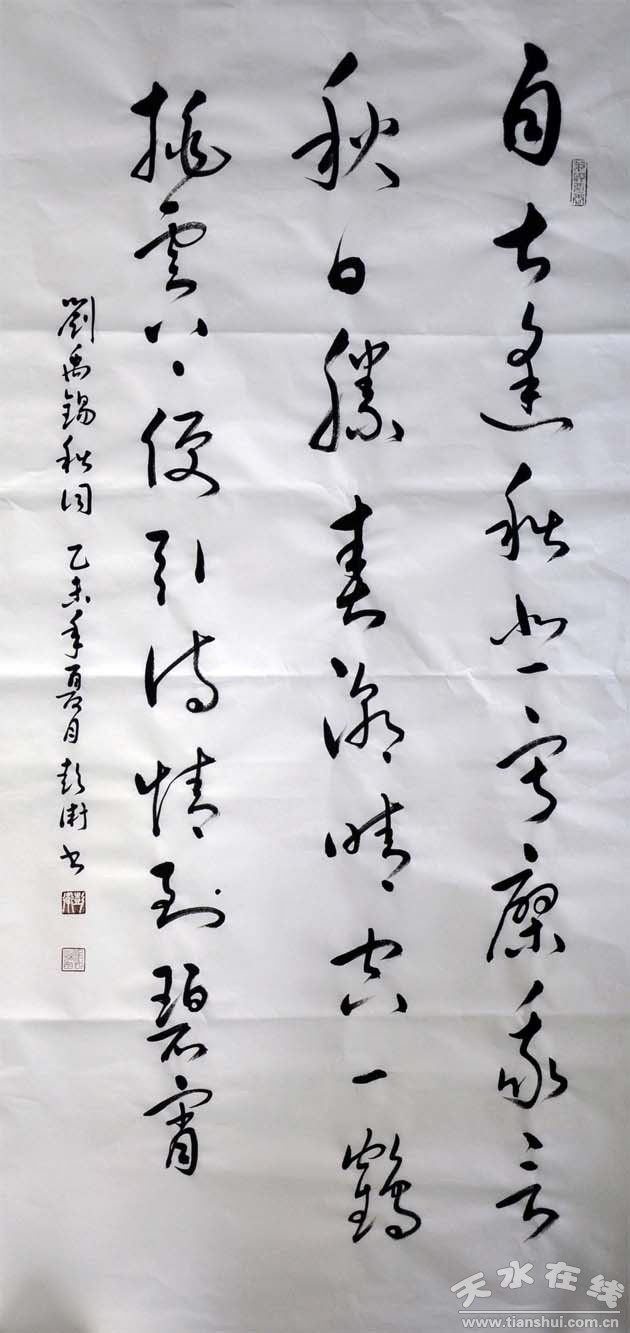 自古逢秋悲寂寥我言
秋日勝春潮晴空一鶴
排雲上便引詩情到碧霄
劉禹錫秋詞 乙未年夏月 彭衛書
天水在线
www.tianshui.com.cn